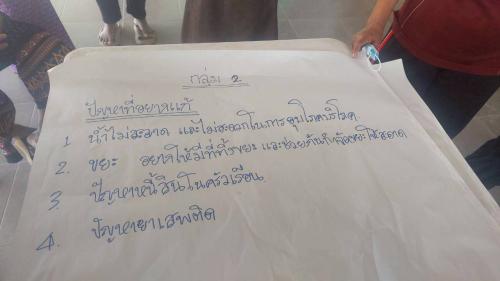 กลุ่ม 2
ปัญหาที่อยากแก้
1 น้ำไม่สะอาด และไม่สะดวกในการอุปโภคบริโภค
2. ขยะ อยากให้มีที่ทิ้งขยะ และช่วยกันทำ ให้สะอาด
3. ปัญหาหนี้สินในครัวเรือน
4. ปัญหายาเสพติด